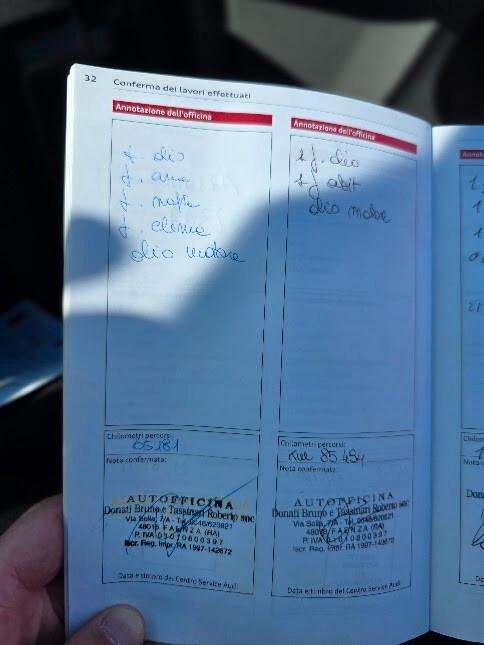 32 Conferma dei lavori effettuati
Annotazione dell'officina
f. olio
f. aria
f. nafta
f. clima
olio motore
Chilometri percorsi:
05181
Nota confermata:
AUTOFFICINA
Donati Bruno e Tassinari Roberto snc
Via Bolla, 7/A - Tel. 0546/620821
48018 FAENZA (RA)
P. IVA 01010800397
Iscr. Reg. Impr. RA 1997-142672
Data e timbro del Centro Service Audi
Annotazione dell'officina
1 f. olio
1 f. abit
olio motore
Chilometri percorsi:
Km 85 484
Nota confermata:
AUTOFFICINA
Donati Bruno e Tassinari Roberto snc
Via Bolla, 7/A - Tel. 0546/620821
48018 FAENZA (RA)
P. IVA 01010800397
Iscr. Reg. Impr. RA 1997-142672
Data e timbro del Centro Service Audi